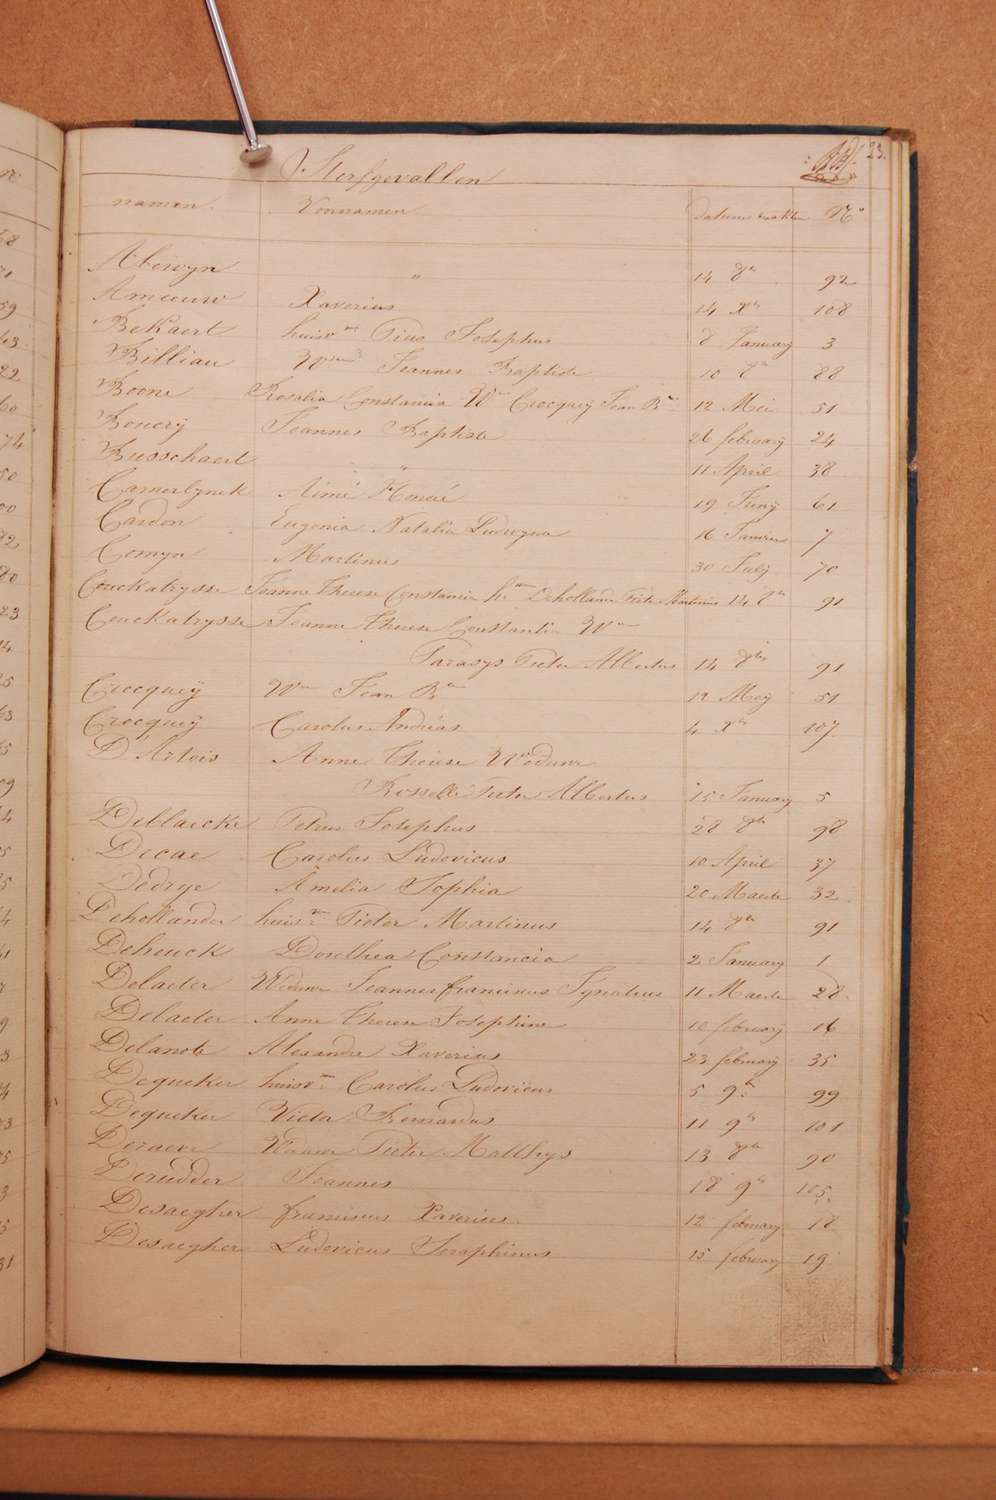 23.
Sterfgevallen
namen. Voornamen Datums der akten N°
Aberyn " 14 8er 92
Ameeuw Xaverius 14 Xer 108
Bekaert huisvre Pius Josephus 8 January 3
Billiau Wwe Joannes Baptiste 10 8er 88
Boone Rosalia Constancia Wwe Crocqueÿ Jean Bte 12 Mei 51
Boucrÿ Joannes Baptiste 26 february 24
Busschaert " 11 April 38
Camerlynck Aimé Honoré 19 Junÿ 61
Cardon Eugenia Natalia Ludwyna 16 7
Comyn Martinus 30 Julÿ 70
Couckatrysse Jeanne Therese Constancia hre Dehollander Pieter Martinus 14 8er 91
Couckatrysse Jeanne Therese Constantia Wwe
Parasys Pieter Albertus 14 8ber 91
Crocqueÿ Wwe Jean Bte 12 Meÿ 51
Crocqueÿ Carolus Andréas 4 Xer 107
D'Artois Anne Therese Weduwe
Rosselle Pieter Albertus 15 January 5
Deblaecke Petrus Josephus 28 8er 98
Decae Carolus Ludovicus 10 April 37
Dedrye Amelia Sophia 20 Maerte 32
Dehollander huisvre Pieter Martinus 14 8er 91
Deheuck Dorothea Constancia 2 January 1
Delaeter Weduwe Joannes franciscus Ignatius 11 Maerte 28.
Delaeter Anne Therese Josephine 10 february 16
Delanote Alexandre Xaverius 23 february 35
Dequeker huisvre Carolus Ludovicus 5 9er 99
Dequeker Victor Bernardus 11 9er 101
Deraeve Weduwe Pieter Matthys 13 8er 90
Derudder Joannes 18 9er 105.
Desaegher franciscus Xaverius 12 february 18
Desaegher Ludovicus Seraphinus 15 february 19